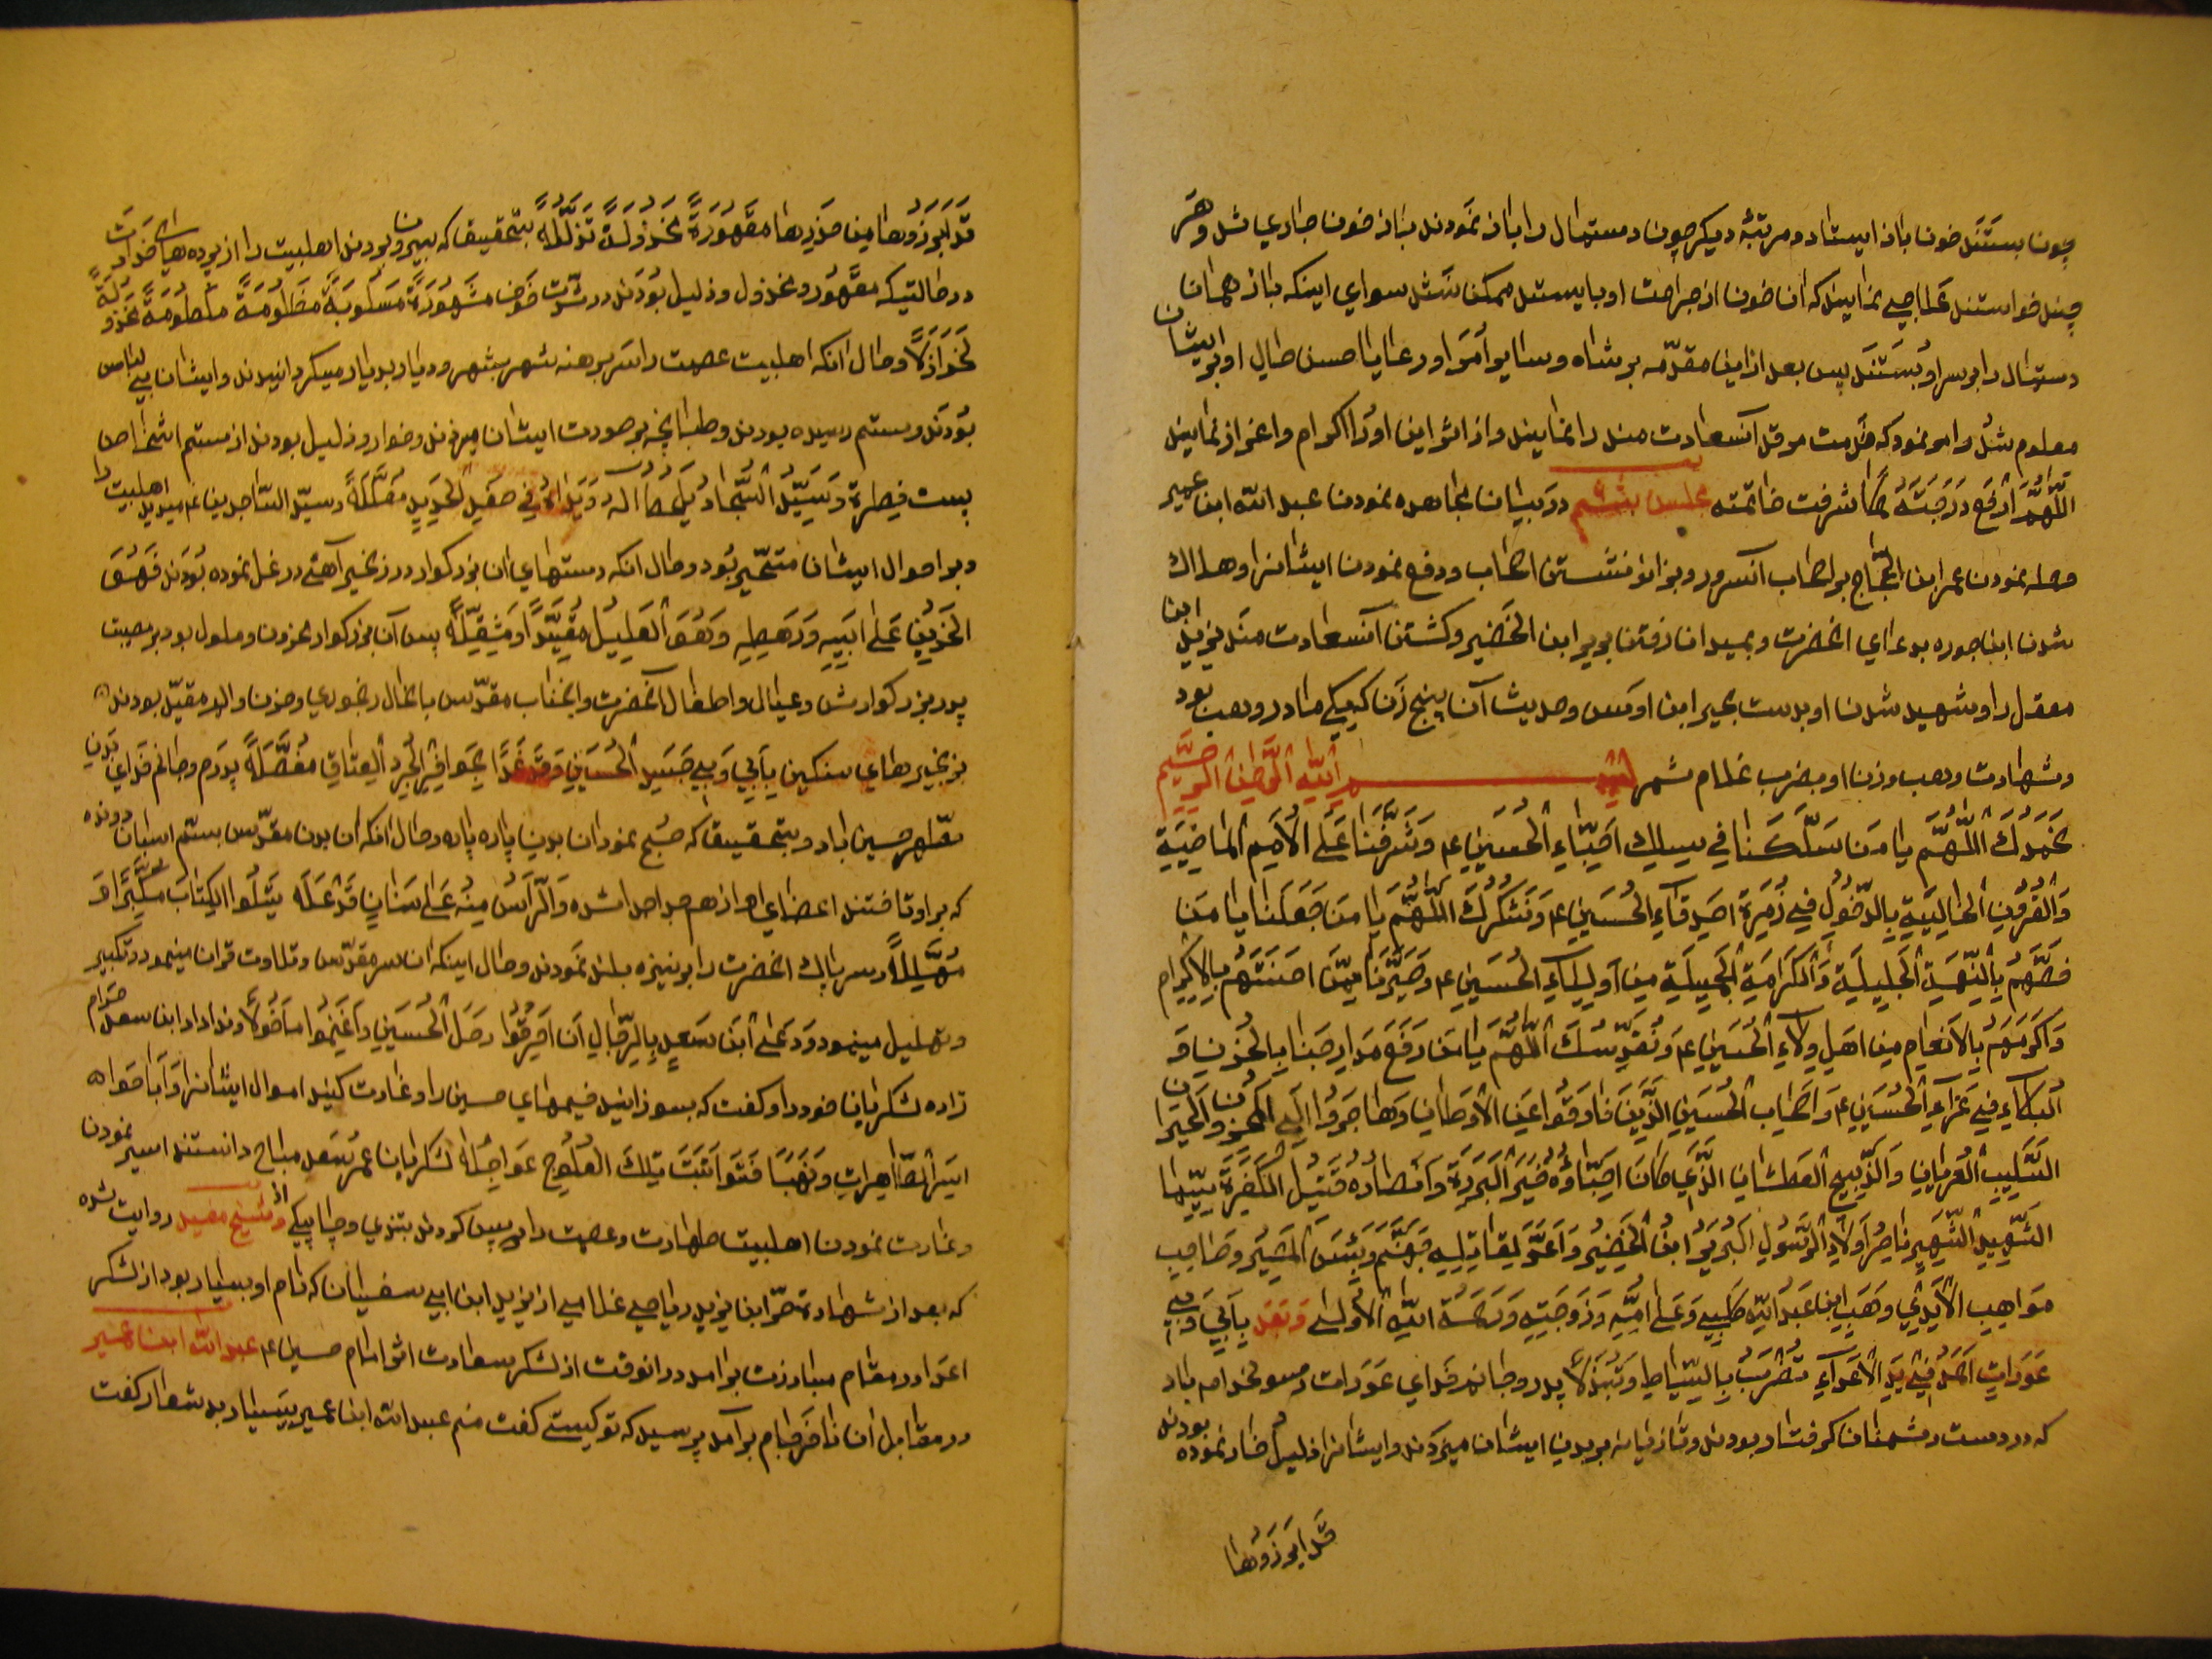 چون بستند خون باز ایستاد و مرتبهٔ دیکر چون دستمال را باز نمودند باز خون جاری شد و هر
چند خواستند علاجی نمایند که ان خون از جراحت او بایستد ممکن نشد سوای اینکه باز همان
دستمال را بر سر او بستند پس بعد از این مقدمه بر شاه و سایر أمرا و رعایا حسن حال او و ایشان
معلوم شد و امر نمود که خدمت مرقد آنسعادتمند را نمایند و از اثر این او را اکرام و اعزاز نمایند
اللهم ارفع درجته کما شرفت خاتمته مجلس بیستم در بیان مجاهده نمودن عبد الله ابن عمیر
و حمله نمودن عمر ابن الحجاج بر اصحاب آنسرور و بزانو نشستن اصحاب و دفع نمودن ایشانرا و هلاک
شدن ابن جوزه بدعای انحضرت و بمیدان رفتن بریر ابن الخضیر و کشتن آنسعادتمند یزید ابن
معقل را و شهید شدن او بدست بحیر ابن اوس و حدیث آن پنج زن که یکی مادر وهب بود
و شهادت وهب و زن او بضرب غلام شمر بسم الله الرحمن الرحیم
نحمدک اللهم یا من سلکنا فی سلک احباء الحسین ع و شرفنا علی الأمم الماضیة
والقرون الخالیة بالدخول فی زمرة اصدقاء الحسین ع و نشکرک اللهم یا من جعلنا یا من
خصهم بالنعمة الجلیلة والکرامة الجمیلة من اولیاء الحسین ع و صیرنا ممن احسنتهم بالاکرام
و اکرمتهم بالانعام من اهل ولاء الحسین ع و نقدسک اللهم یا من رفع مدارجنا بالحزن و
البکاء فی عزاء الحسین ع و اصحاب الحسین الذین فارقوا عن الأوطان و هاجروا الی
السلیب العریان والذبیح العطشان الذی کان احباؤه خیر البررة و انصاره قتیل الکفرة سیما
الشهید الشهیر ناصر اولاد الرسول البریر ابن الخضیر و أعد لقاتلیه جهنم و بئس المصیر و صاحب
مواهب الأیدی وهب ابن عبد الله کلبی و علی امه و زوجته و رحمة الله الأولی و نقل بابی و بی
عورات احمد فی ید الأعداء تضرب بالسیاط و تبذلا پدر و جانم فدای عورات رسولخدا م باد
که در دست دشمنان کرفتار بودند و تازیانه بر بدن ایشان میزدند و ایشانرا ذلیل و خار نموده بودند
قد ابرزوها
قد ابرزوها من خدرها مقهورة مخذولة تذللا بتحقیق که بیرون بردند اهلبیت را از پرده های خدرات
در حالتیکه مقهور و مخذول و ذلیل بودند مشهورة مسلوبة مظلومة ملطومة
و حال انکه اهلبیت عصمت را سر برهنه شهر بشهر و دیار بدیار میکردانیدند و ایشان بی لباس
بودند و ستم رسیده بودند و طبانچه بر صورت ایشان میزدند و خوار و ذلیل بودند از ستم اشخاص
پست فطرة و سید السجاد یلحظ اله و یداه فی صفد الحدید مغللة و سید الساجدین ع میدید اهلبیت را
و بر احوال ایشان متحیر بود و حال انکه دستهای ان بزرکوار در زنجیر آهنی در غل نموده بودند فهو
الحزین علی ابیه و رهطه و هو العلیل مقیدا و مثقلا پس آن بزرکوار محزون و ملول بود بر مصیبت
پدر بزرکوارش و عیال و اطفال آنحضرت و انجناب مقدس با حال رنجوری و حزن و الم مقید بودند
بزنجیرهای سنکین بابی و بی جسد الحسین و قد غدا بحوافر الجرد العتاق مفصلا پدرم و جانم فدای بدن
مطهر حسین باد و بتحقیق که صبح نمود ان بدن پاره پاره و حال انکه ان بدن مقدس بسم اسبان دونده
که بر او تاختند اعضای او از هم جدا جدا شده و الرأس منه علی سنان قد علا یتلوا الکتاب مکبرا و
مهللا و سر پاک انحضرت را بر نیزه بلند نمودند و حال اینکه ان سر مقدس و تلاوت قران مینمود و تکبیر
و تهلیل مینمود و دعی ابن سعد بالرجال ان احرقوا رحل الحسین و اغنموا و ندا داد ابن سعد حرام
زاده لشکریان خود را و کفت که بسوزانید خیمهای حسین را و غارت کنید اموال ایشانرا و اباحوا
اسر الطاهرات و نهبها فتواثبت تلک العلوج عواجلا لشکریان عمر سعد مباح دانستند اسیر نمودن
و غارت نمودن اهلبیت طهارت و عصمت را پس کردند بتندی و چابکی از شیخ مفید روایت شده
که بعد از شهادة حر ابن یزید ریاحی غلامی از یزید ابن ابی سفیان که نام او یسار بود از لشکر
اعدا در مقام مبارزت برآمد در انوقت از لشکر سعادت اثر امام حسین ع عبد الله ابن عمیر
در مقابل ان نافرجام برآمد پرسید که تو کیستی کفت منم عبد الله ابن عمیر یسار بد شعار کفت